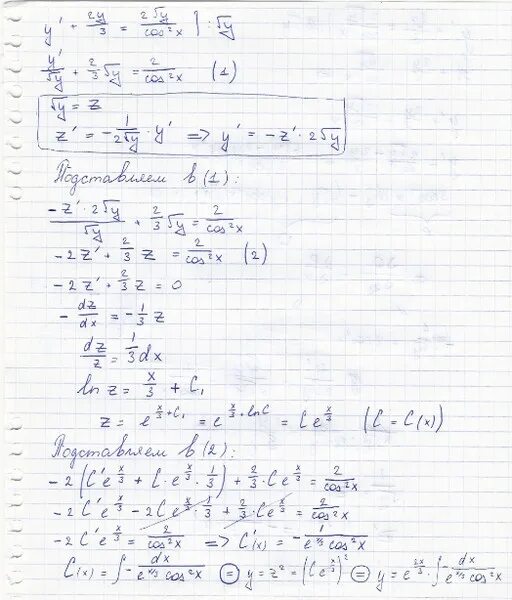 y' + 2y/3 = 2√y/cos²x | : √y
y'/√y + 2/3 √y = 2/cos²x (1)
√y = z
z' = -1/(2√y) · y' => y' = -z' · 2√y
Подставляем в (1):
(-z' · 2√y)/√y + 2/3 √y = 2/cos²x
-2z' + 2/3 z = 2/cos²x (2)
-2z' + 2/3 z = 0
-dz/dx = -1/3 z
dz/z = 1/3 dx
ln z = x/3 + C₁
z = e^(x/3 + C₁) = e^(x/3 + ln C) = C e^(x/3) (C = C(x))
Подставляем в (2):
-2(C' e^(x/3) + C · e^(x/3) · 1/3) + 2/3 · C e^(x/3) = 2/cos²x
-2C' e^(x/3) - 2C e^(x/3) · 1/3 + 2/3 · C e^(x/3) = 2/cos²x
-2C' e^(x/3) = 2/cos²x => C'(x) = -1/(e^(x/3) cos²x)
C(x) = ∫ - dx/(e^(x/3) cos²x) => y = z² = (C e^(x/3))² => y = e^(2x/3) · ∫ - dx/(e^(x/3) cos²x)